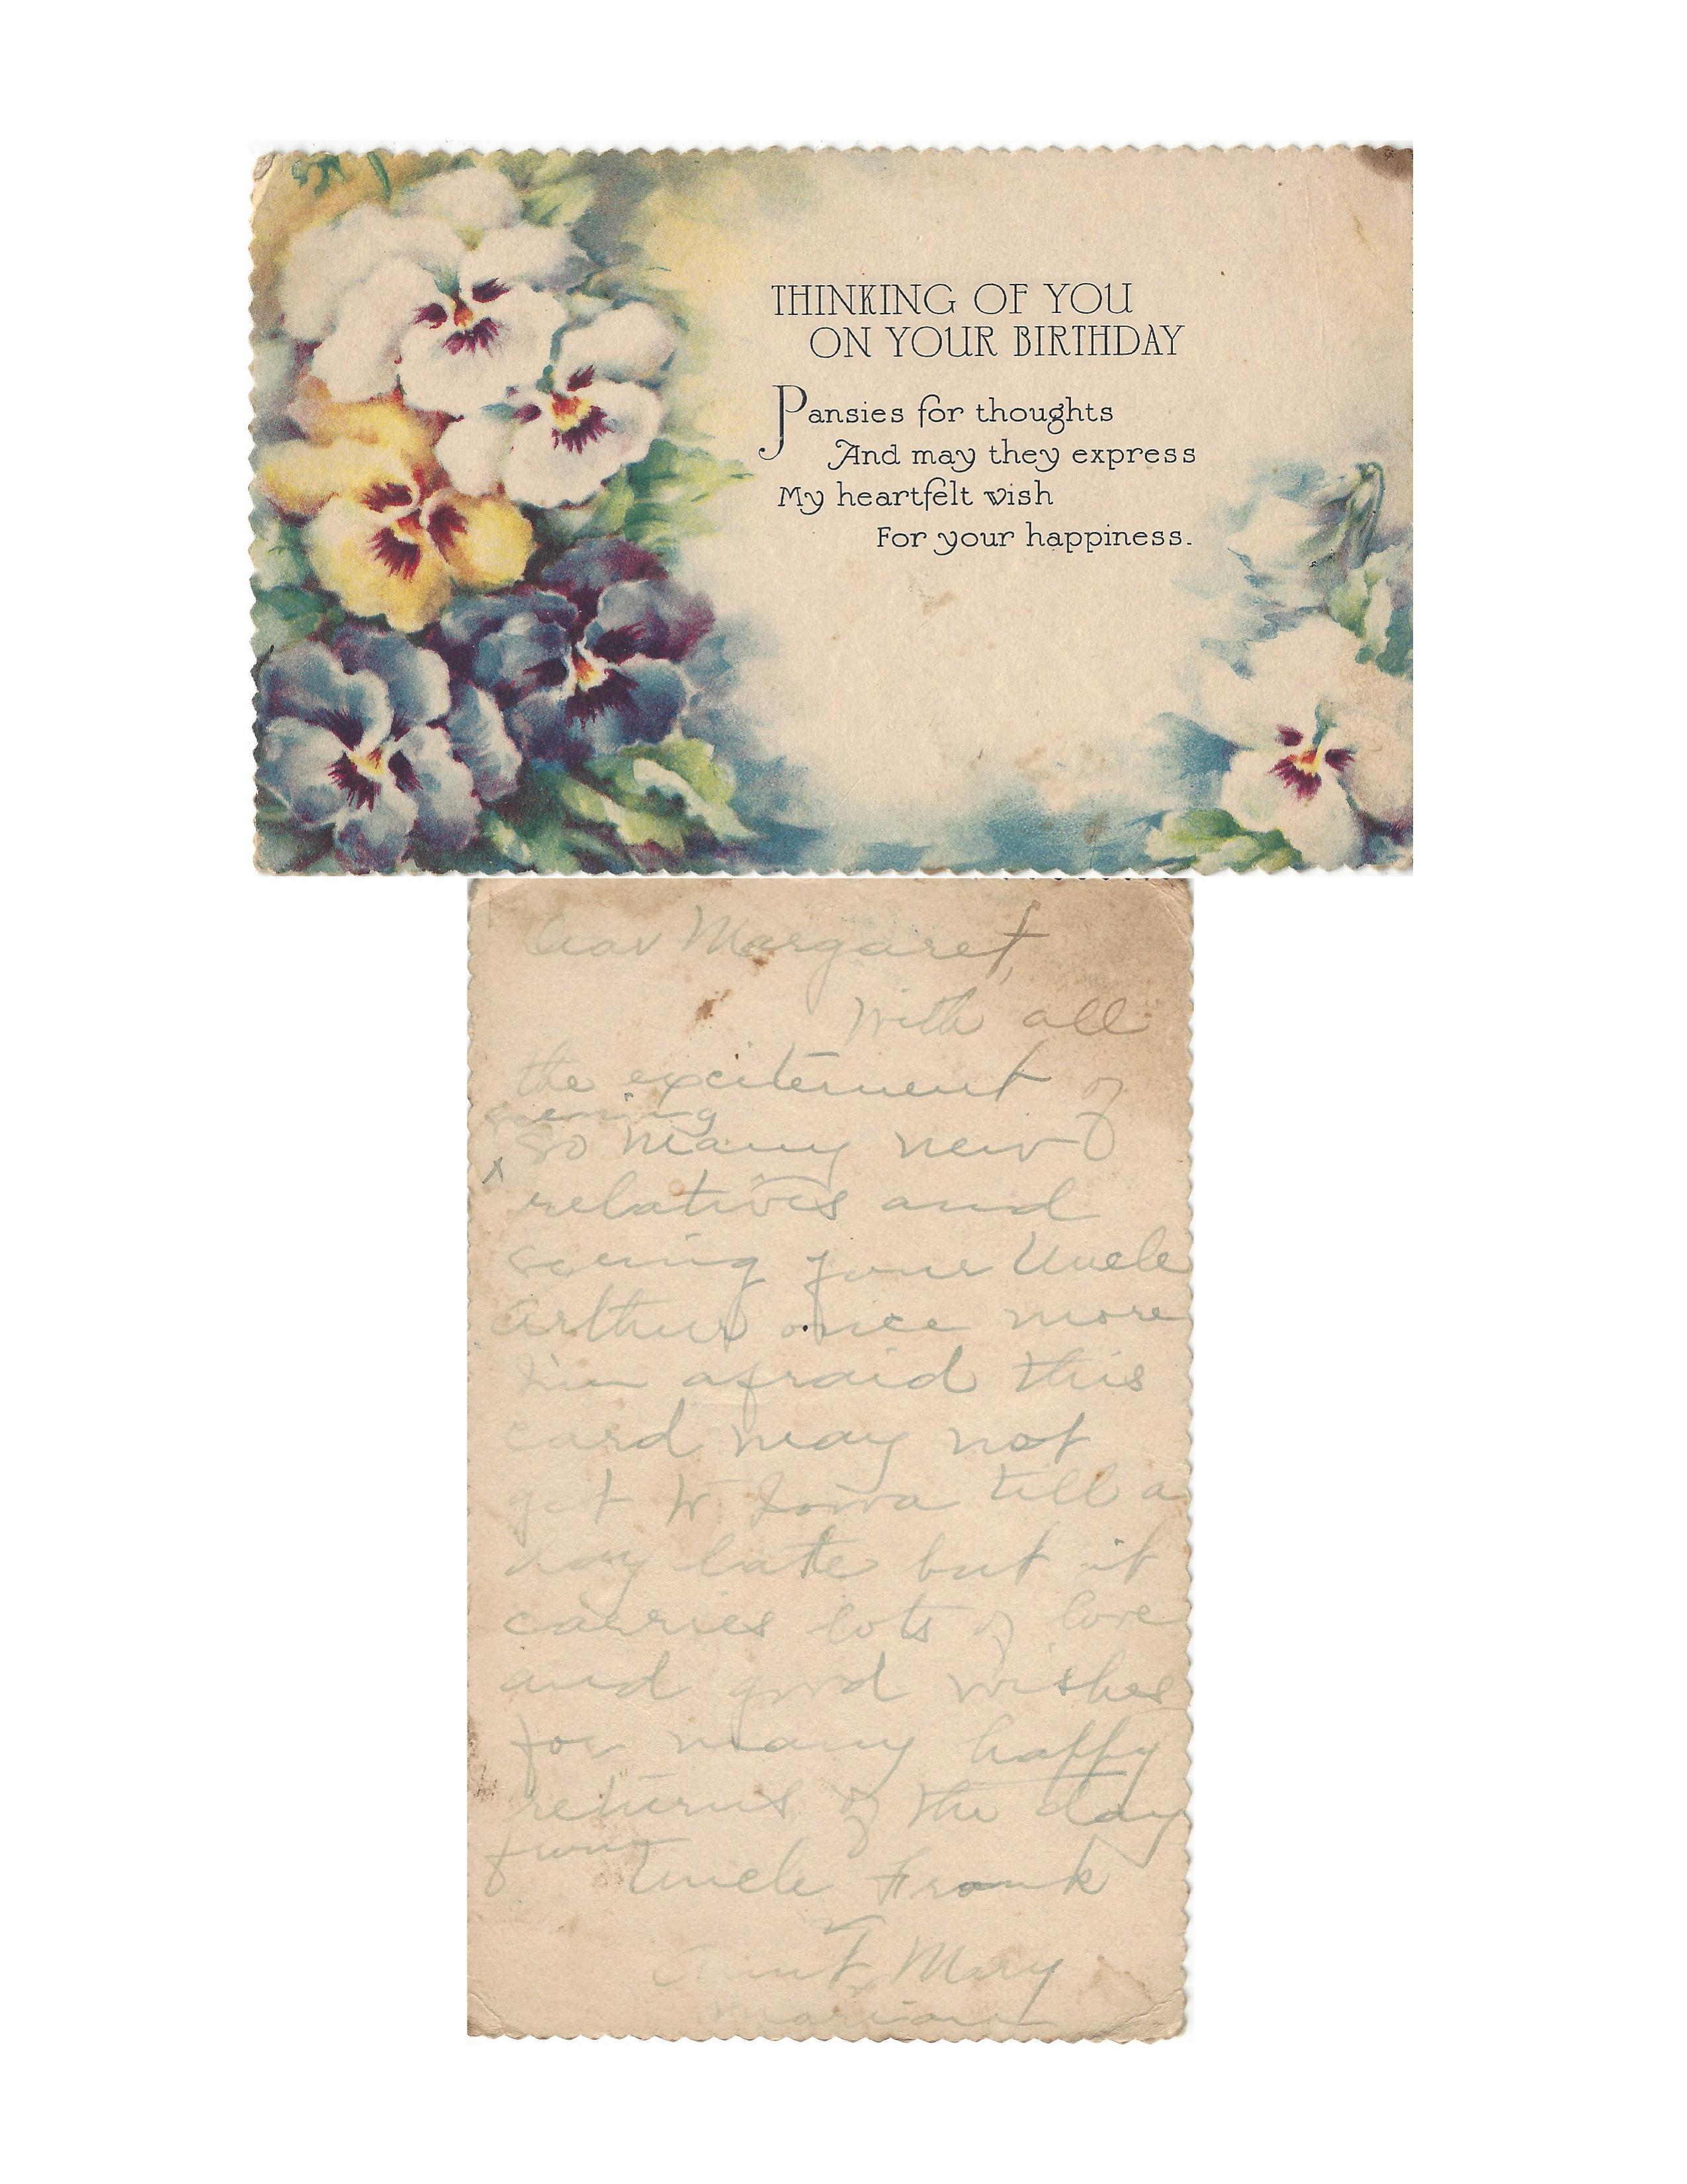 THINKING OF YOU
ON YOUR BIRTHDAY
Pansies for thoughts
And may they express
My heartfelt wish
For your happiness.
Dear Margaret,
With all
the excitement of
seeing
so many new
relatives and
seeing your Uncle
Arthur once more
I'm afraid this
card may not
get to Iowa till a
day late but it
carries lots of love
and good wishes
for many happy
returns of the day
from
Uncle Frank
Aunt Mary
Marian